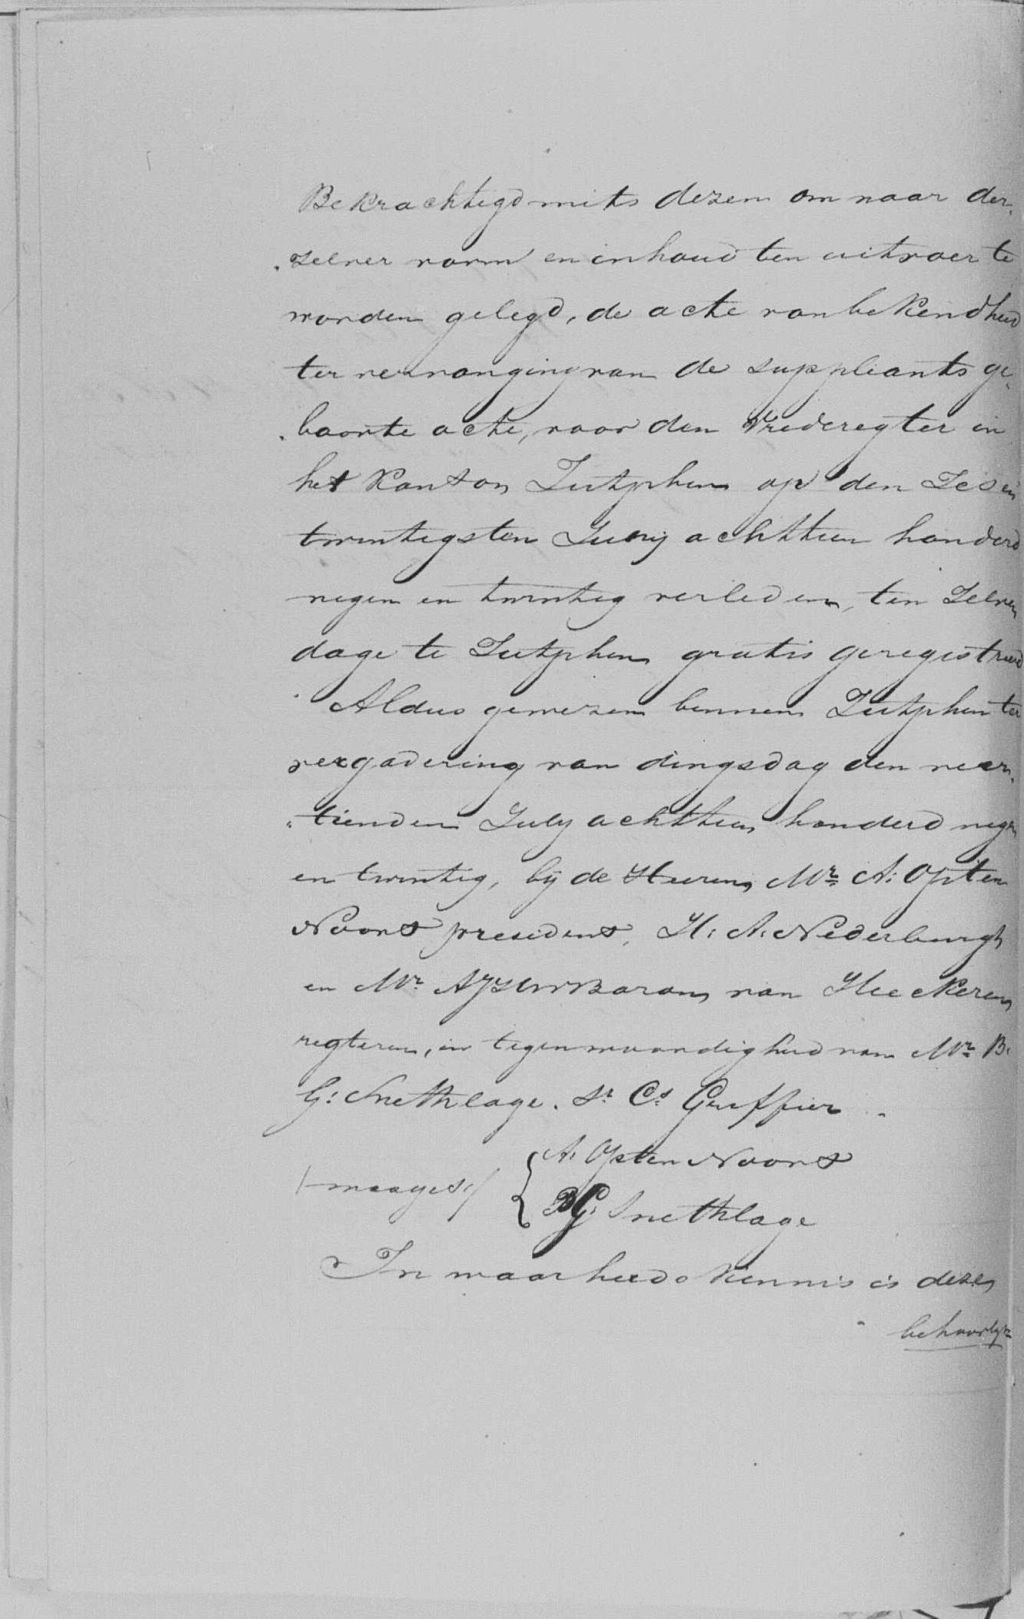 Bekrachtigd mits dezen om naar der¬
zelver vorm en inhoud ten uitvoer te
worden gelegd, de acte van bekendheid
ter vervanging van de suppliants ge¬
boorte acte, voor den Vrederegter in
het Kanton Zutphen op den Zes en
twintigsten Juny achttien honderd
negen en twintig verleden, ten Zelven
dage te Zutphen gratis geregistreerd
Aldus gewezen binnen Zutphen ter
vergadering van dingsdag den veer¬
tienden July achttien honderd negen
en twintig, bij de Heeren Mr. A: Opten
Noort president, H: A: Nederburgh
en Mr. Baron van Heeckeren
regteren, in tegenwoordigheid van Mr. B:
G: Snethlage. St. Cs. Greffier
{ A: Opten Noort
BG: Snethlage
In waarheids kennis is deze
behoorlijk